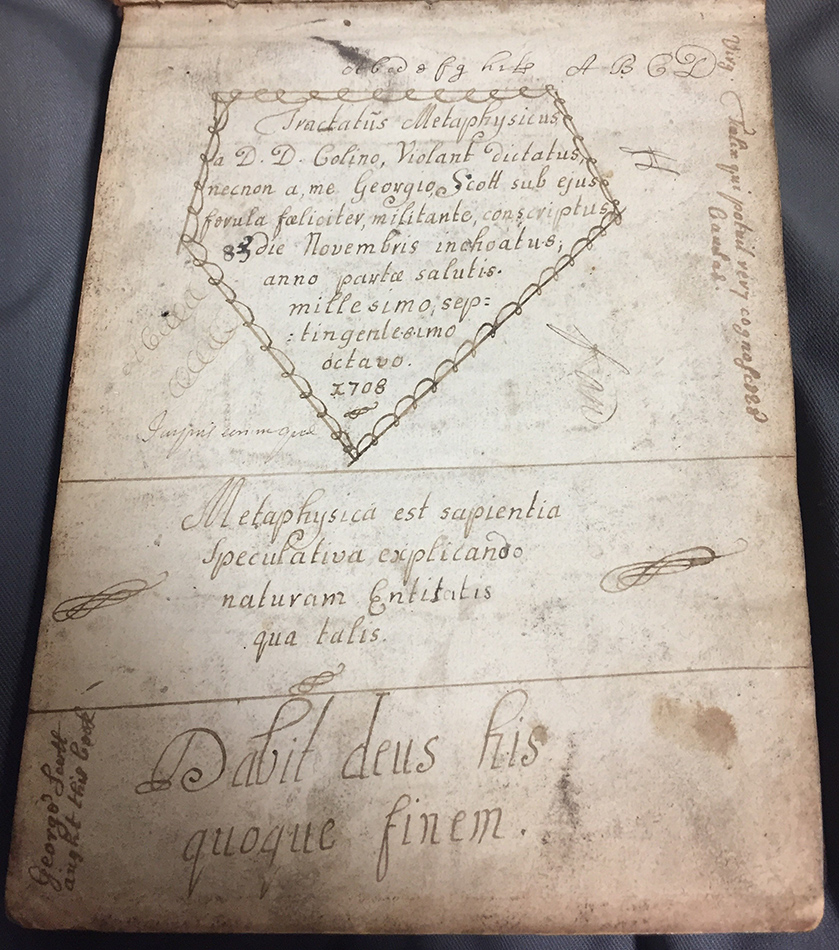 a b c d e f g h i k A B C D
Tractatûs Metaphysicus,
a D. D. Colino, Violant dictatus,
necnon a, me Georgio Scott sub ejus
ferula fœliciter, militante, conscriptus,
die Novembris inchoatus,
anno partæ salutis.
millesimo, sep=
:tingentesimo
octavo.
1708
Metaphysica est sapientia
speculativa explicando
naturam Entitatis
qua talis.
Dabit deus his
quoque finem.
Virg Fælix qui potuit rerū cognoscere
Causas
George Scott
aught this book